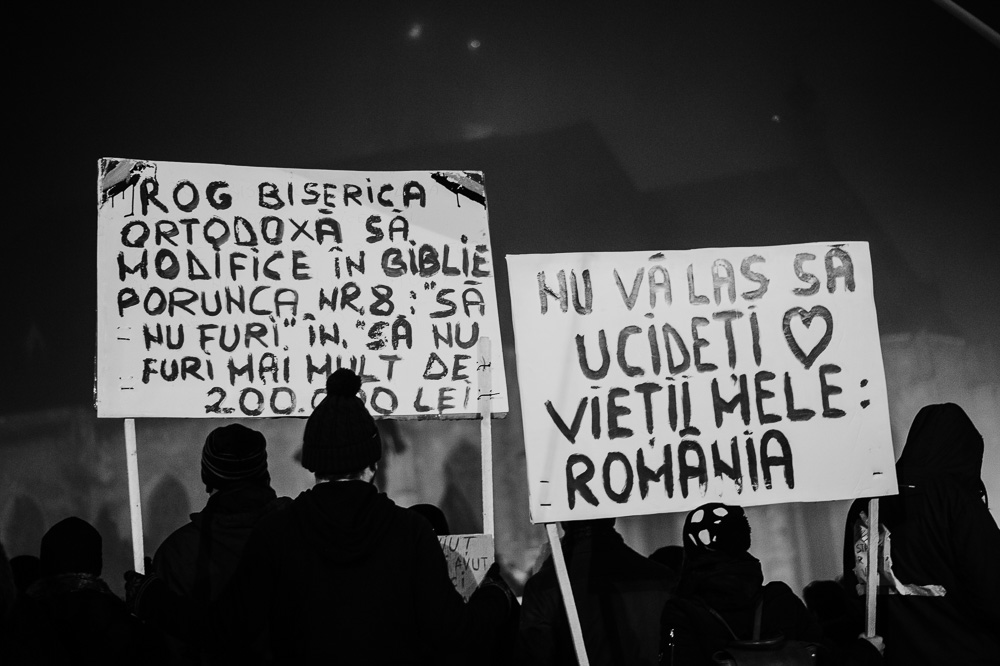 ROG BISERICA
ORTODOXĂ SĂ
MODIFICE ÎN BIBLIE
PORUNCA NR.8: "SĂ
NU FURI" ÎN "SĂ NU
FURI MAI MULT DE
200.000 LEI
NU VĂ LAS SĂ
UCIDEȚI ♡
VIEȚII MELE:
ROMÂNIA
AVUT